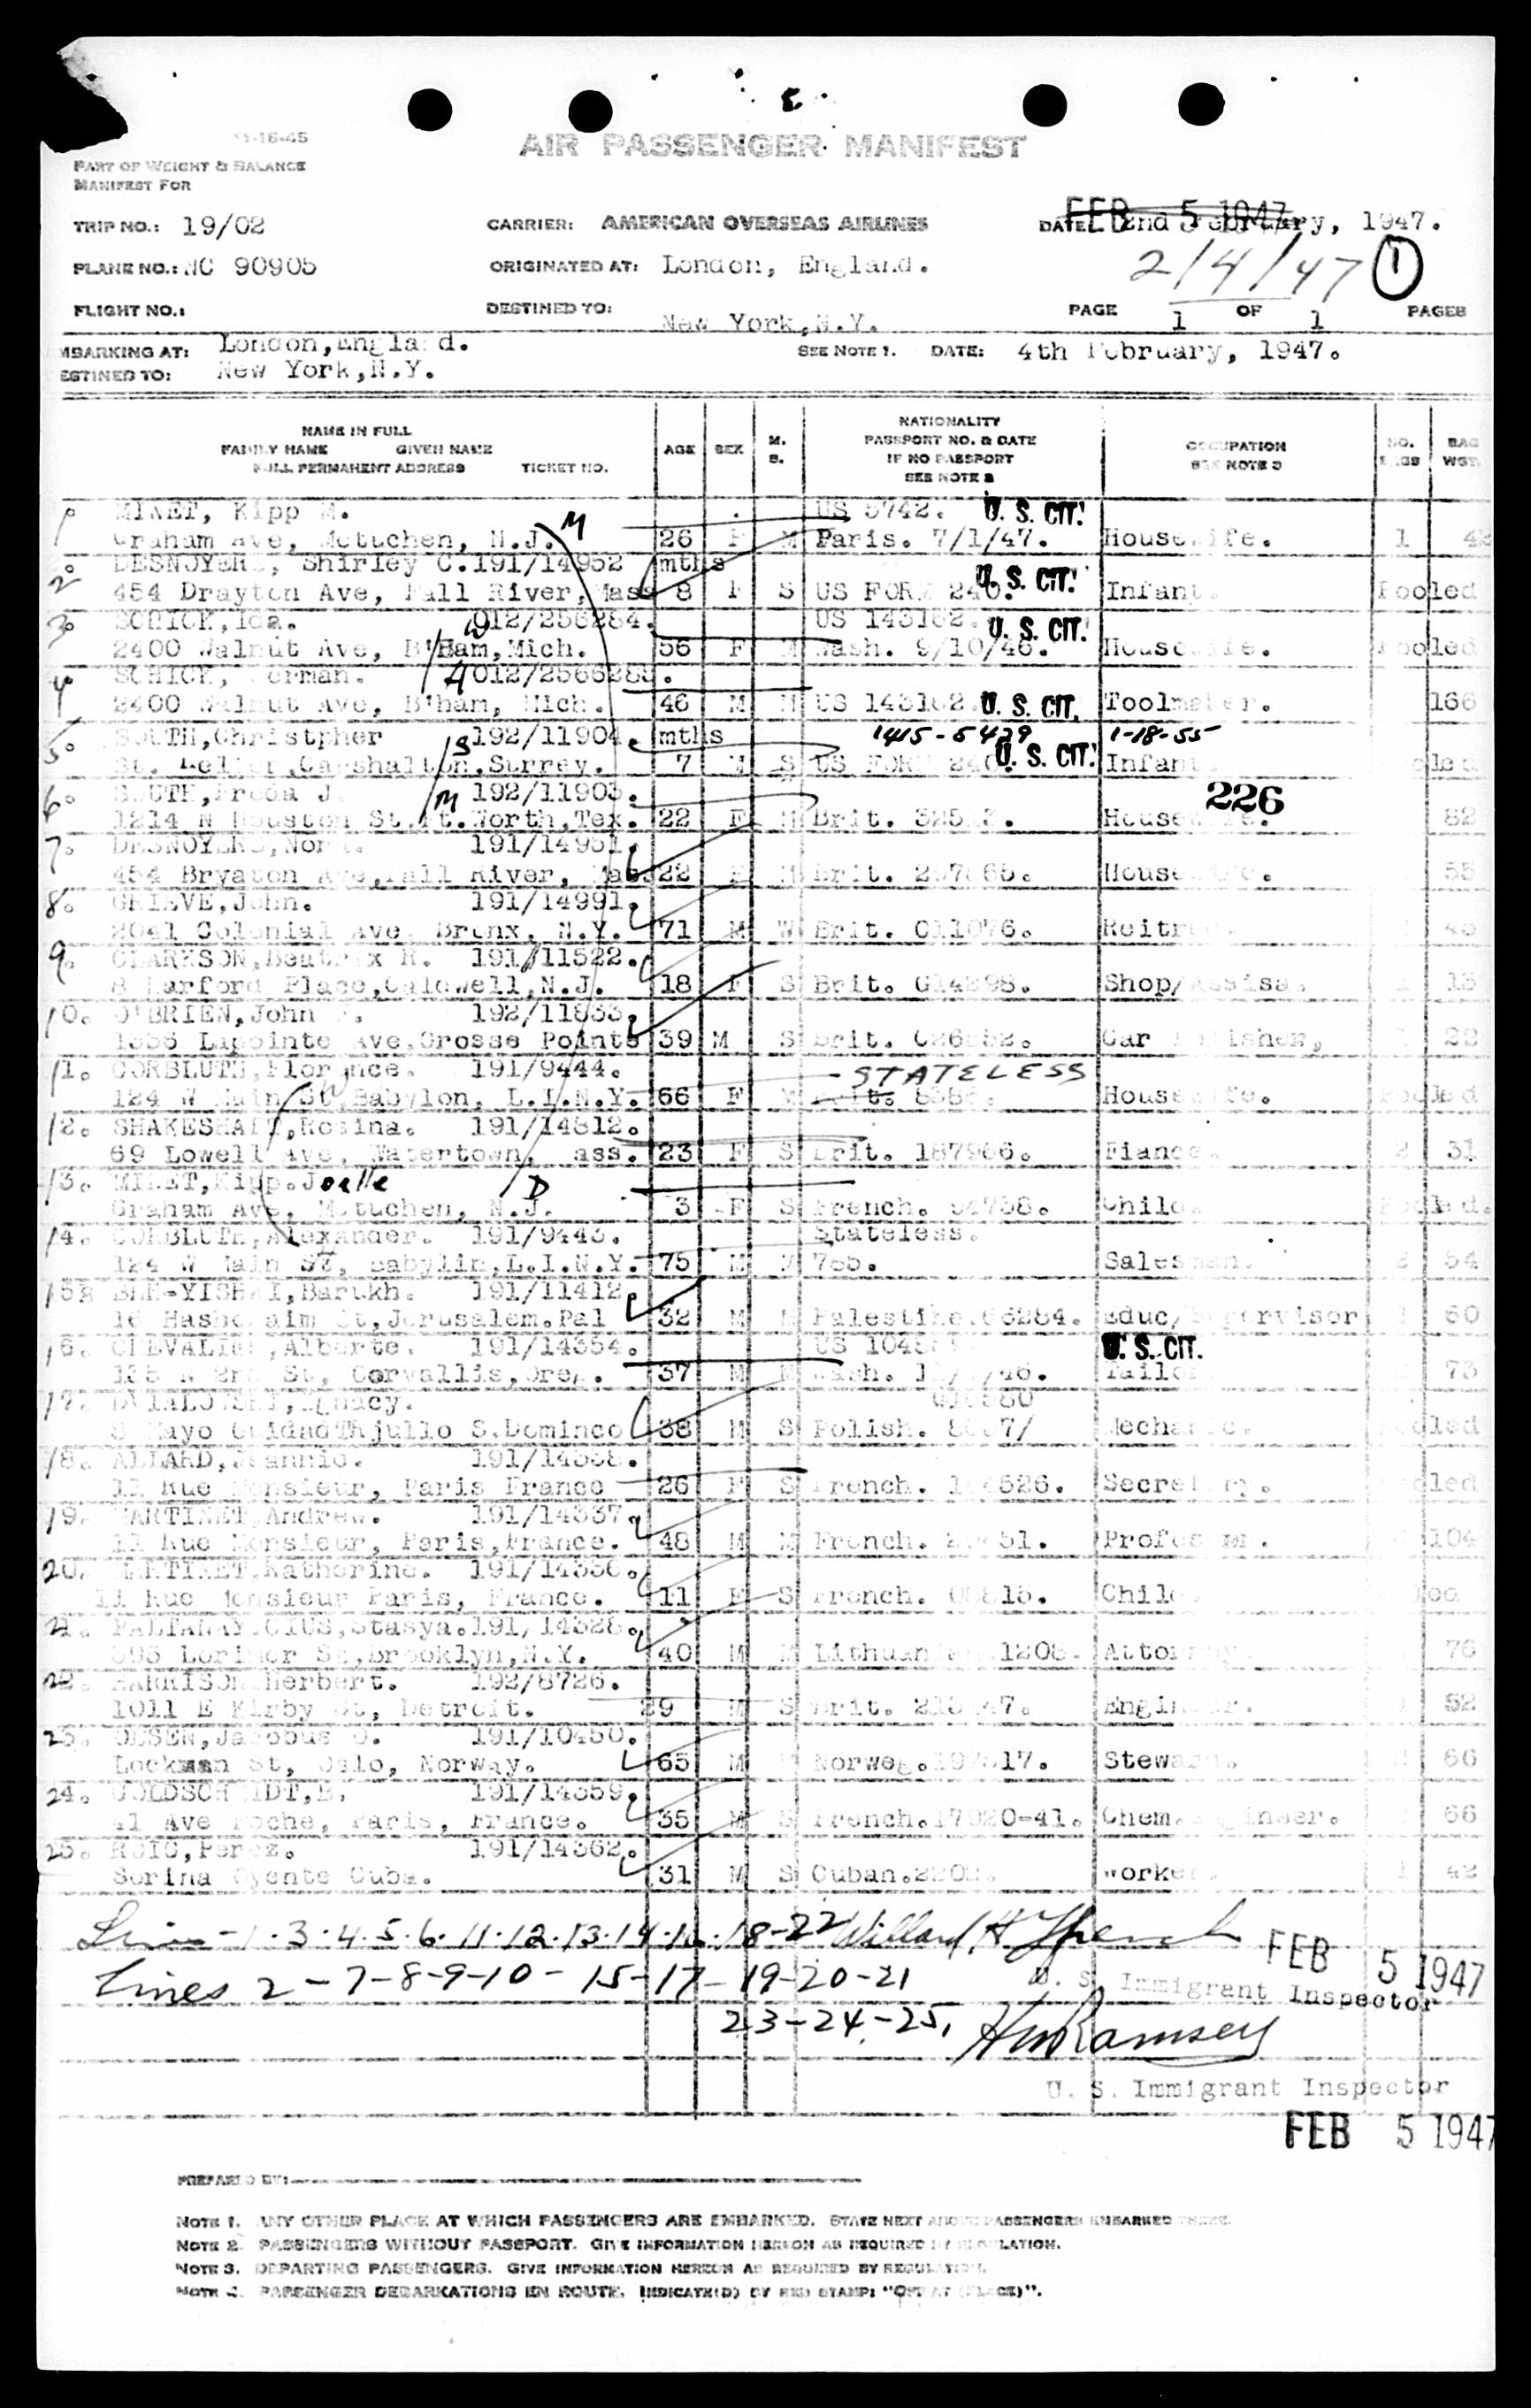 11-18-45
AIR PASSENGER MANIFEST
PART OF WEIGHT & BALANCE
MANIFEST FOR
TRIP NO.: 19/02
CARRIER: AMERICAN OVERSEAS AIRLINES
DATE: 2nd February, 1947.
FEB 5 1947
PLANE NO.: NC 90905
ORIGINATED AT: London, England.
2/4/47 1
FLIGHT NO.:
DESTINED TO: New York,N.Y.
PAGE 1 OF 1 PAGES
MBARKING AT: London,England.
SEE NOTE 1. DATE: 4th February, 1947.
ESTINED TO: New York,N.Y.
NAME IN FULL
FAMILY NAME GIVEN NAME
FULL PERMANENT ADDRESS TICKET NO.
AGE SEX M. S.
NATIONALITY
PASSPORT NO. & DATE
IF NO PASSPORT
SEE NOTE 2
OCCUPATION
SEE NOTE 3
NO. BAGS
BAG WGT.
1. MINET, Kipp M. M US 5742. U. S. CIT.
Graham Ave, Metuchen, N.J. 26 F M Paris. 7/1/47. Housewife. 1 42
2. DESNOYERS, Shirley C.191/14952 mths U. S. CIT.
454 Drayton Ave, Fall River, Mass 8 F S US FORM 240. Infant. Pooled
3. SCHICK,Ida. W 012/256284. US 143182. U. S. CIT.
2400 Walnut Ave, B'Ham,Mich. 56 F M Wash. 9/10/46. Housewife. Pooled
4. SCHICK, Herman. 012/2566283.
2400 Walnut Ave, B'ham, Mich. 46 M M US 143182. U. S. CIT. Toolmaker. 166
5. SOUTH,Christpher S 192/11904. mths 1415-5429 1-18-55
Carshalton,Surrey. 7 M S US FORM 240. U. S. CIT. Infant. Pooled
6. SOUTH,Freda J. M 192/11903. 226
1214 N Houston St.Ft.Worth,Tex. 22 F M Brit. Housewife. 82
7. DESNOYERS,Nora. 191/14951.
454 Bryaton Ave,Fall River, Mass 22 F M Brit. Housewife. 55
8. GRIEVE,John. 191/14991.
2041 Colonial Ave, Bronx, N.Y. 71 M W Brit. C11076.
9. CLARKSON,Beatrix R. 191/11522.
8 Harford Place,Caldwell,N.J. 18 F S Brit. Shop/Assisa.
10. O'BRIEN,John F. 192/11833.
1356 Lapointe Ave,Grosse Pointe 39 M S Brit. Car Polisher, 22
11. CORBLUTH,Florance. 191/9444. STATELESS
124 W Main St,Babylon, L.I.N.Y. 66 F M Brit. Housewife. Pooled
12. SHAKESHAFT,Rosina. 191/14812.
69 Lowell Ave, Watertown, Mass. 23 F S Brit. 187966. Fiance. 2 31
13. MINET,Kipp.Joelle D
Graham Ave, Metuchen, N.J. 3 F S French. Child. Pooled.
14. CORBLUTH,Alexander. 191/9443. Stateless.
124 W Main St, Babylin,L.I.N.Y. 75 M M 785. Salesman. 54
15. BEN-YISHAI,Barukh. 191/11412
St,Jerusalem.Pal 32 M M Palestine.66284. Educ/Supervisor 60
16. CHEVALIER,Alberte. 191/14354. U. S. CIT.
135 N 2nd St, Corvallis,Ore. 37 M M Wash. Tailor 73
17. Ignacy.
8 Mayo Cuidad Trjullo S.Dominco 38 M S Polish. Mechanic. Pooled
18. ALLARD,Jeannie. 191/14338.
11 Rue Monsieur, Paris France 26 F S French. Secretary. Pooled
19. MARTINET,Andrew. 191/14337.
11 Rue Monsieur, Paris,France. 48 M M French. Professor. 104
20. MARTINET,Katherine. 191/14336.
11 Rue Monsieur Paris, France. 11 F S French. Child.
21. Stasya.191/14328.
395 Lorimer St,Brooklyn,N.Y. 40 M M Lithuanian. 1208. Attorney. 76
22. HARRISON,Herbert. 192/8726.
1011 E Kirby St, Detroit. 29 M S Brit. Engineer. 52
23. OLSEN,Jacobus O. 191/10450.
Lockman St, Oslo, Norway. 65 M Norweg. Steward. 66
24. GOLDSCHMIDT,B. 191/14359.
41 Ave Foche, Paris, France. 35 M S French.17920-41. Chem. Engineer. 66
25. ROIG,Perez. 191/14362.
Cuba. 31 M S Cuban. worker. 1 42
Lines - 1 . 3 . 4 . 5 . 6 . 11 . 12 . 13 . 14 . 16 . 18-22 Willard H
FEB 5 1947
U. S. Immigrant Inspector
Lines 2 - 7 - 8 - 9 - 10 - 15 - 17 - 19 - 20 - 21
23 - 24 - 25. HW Ramsey
U. S. Immigrant Inspector
FEB 5 1947
PREPARED BY:
NOTE 1. ANY OTHER PLACE AT WHICH PASSENGERS ARE EMBARKED. STATE NEXT ABOVE PASSENGERS EMBARKED THERE.
NOTE 2. PASSENGERS WITHOUT PASSPORT. GIVE INFORMATION HEREON AS REQUIRED BY REGULATION.
NOTE 3. DEPARTING PASSENGERS. GIVE INFORMATION HEREON AS REQUIRED BY REGULATION.
NOTE 4. PASSENGER DEBARKATIONS EN ROUTE. INDICATE(D) BY RED STAMP: "OFF AT (PLACE)".